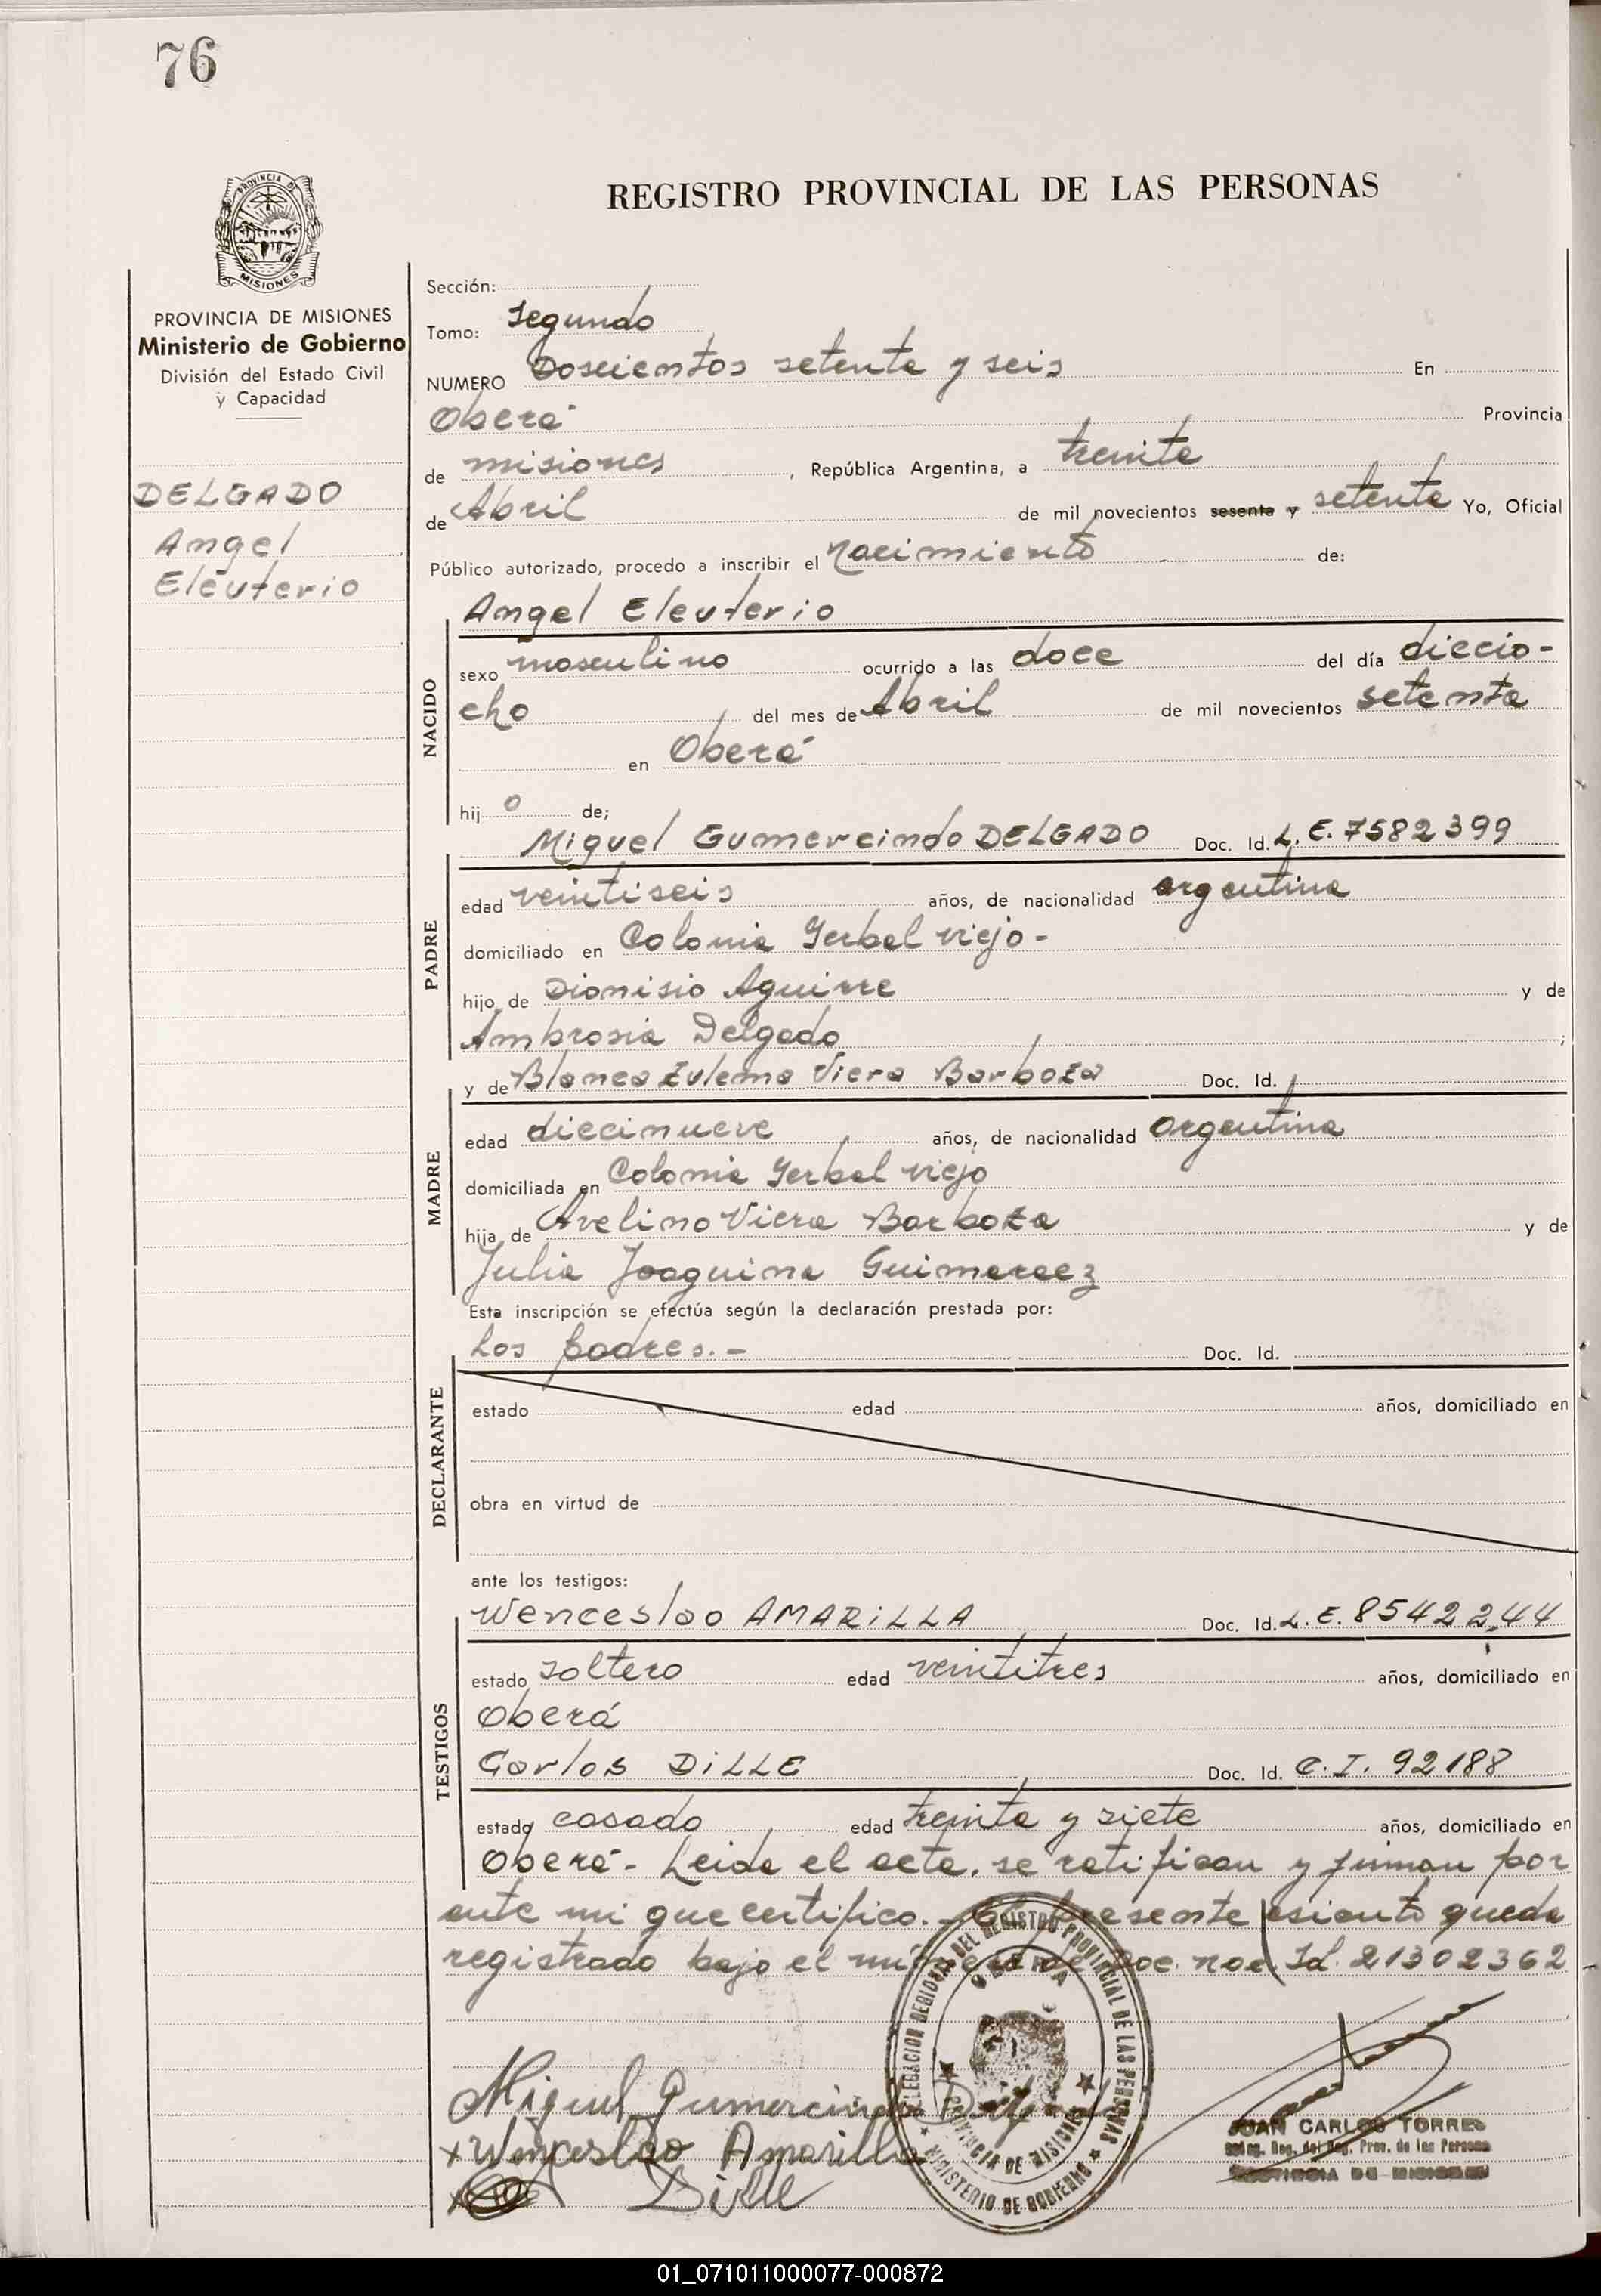 76
PROVINCIA DE
MISIONES
REGISTRO PROVINCIAL DE LAS PERSONAS
PROVINCIA DE MISIONES
Ministerio de Gobierno
División del Estado Civil
y Capacidad
DELGADO
Angel
Eleuterio
Sección:
Tomo: Segundo
NUMERO Doscientos setenta y seis En
Oberá Provincia
de misiones, República Argentina, a treinta
de Abril de mil novecientos sesenta y setenta Yo, Oficial
Público autorizado, procedo a inscribir el nacimiento de:
Angel Eleuterio
NACIDO
sexo masculino ocurrido a las doce del día diecio-
cho del mes de Abril de mil novecientos setenta
en Oberá
hijo de;
Miguel Gumercindo DELGADO Doc. Id. L.E. 7582399
PADRE
edad veintiseis años, de nacionalidad argentina
domiciliado en Colonia Yerbal viejo-
hijo de Dionisio Aguirre y de
Ambrosia Delgado;
y de Blanca Zulema Viera Barboza Doc. Id.
MADRE
edad diecinueve años, de nacionalidad argentina
domiciliada en Colonia Yerbal viejo
hija de Avelino Viera Barboza y de
Julia Joaquina Guimaraez
Esta inscripción se efectúa según la declaración prestada por:
Los padres.- Doc. Id.
DECLARANTE
estado edad años, domiciliado en
obra en virtud de
ante los testigos:
TESTIGOS
Wenceslao AMARILLA Doc. Id. L.E. 8542244
estado soltero edad veintitres años, domiciliado en
Oberá
Carlos DILLE Doc. Id. C.I. 92188
estado casado edad treinta y siete años, domiciliado en
Oberá- Leida el acta, se ratifican y firman por
ante mi que certifico.- El presente asiento queda
registrado bajo el número de Doc. nac. Id. 21302362
DELEGACION REGIONAL DEL REGISTRO PROVINCIAL DE LAS PERSONAS
OBERA
PROVINCIA DE MISIONES
MINISTERIO DE GOBIERNO
Miguel Gumercindo Delgado
x Wenceslao Amarilla
x Dille
JUAN CARLOS TORRES
Reg. del Reg. Prov. de las Personas
PROVINCIA DE MISIONES
01_071011000077-000872